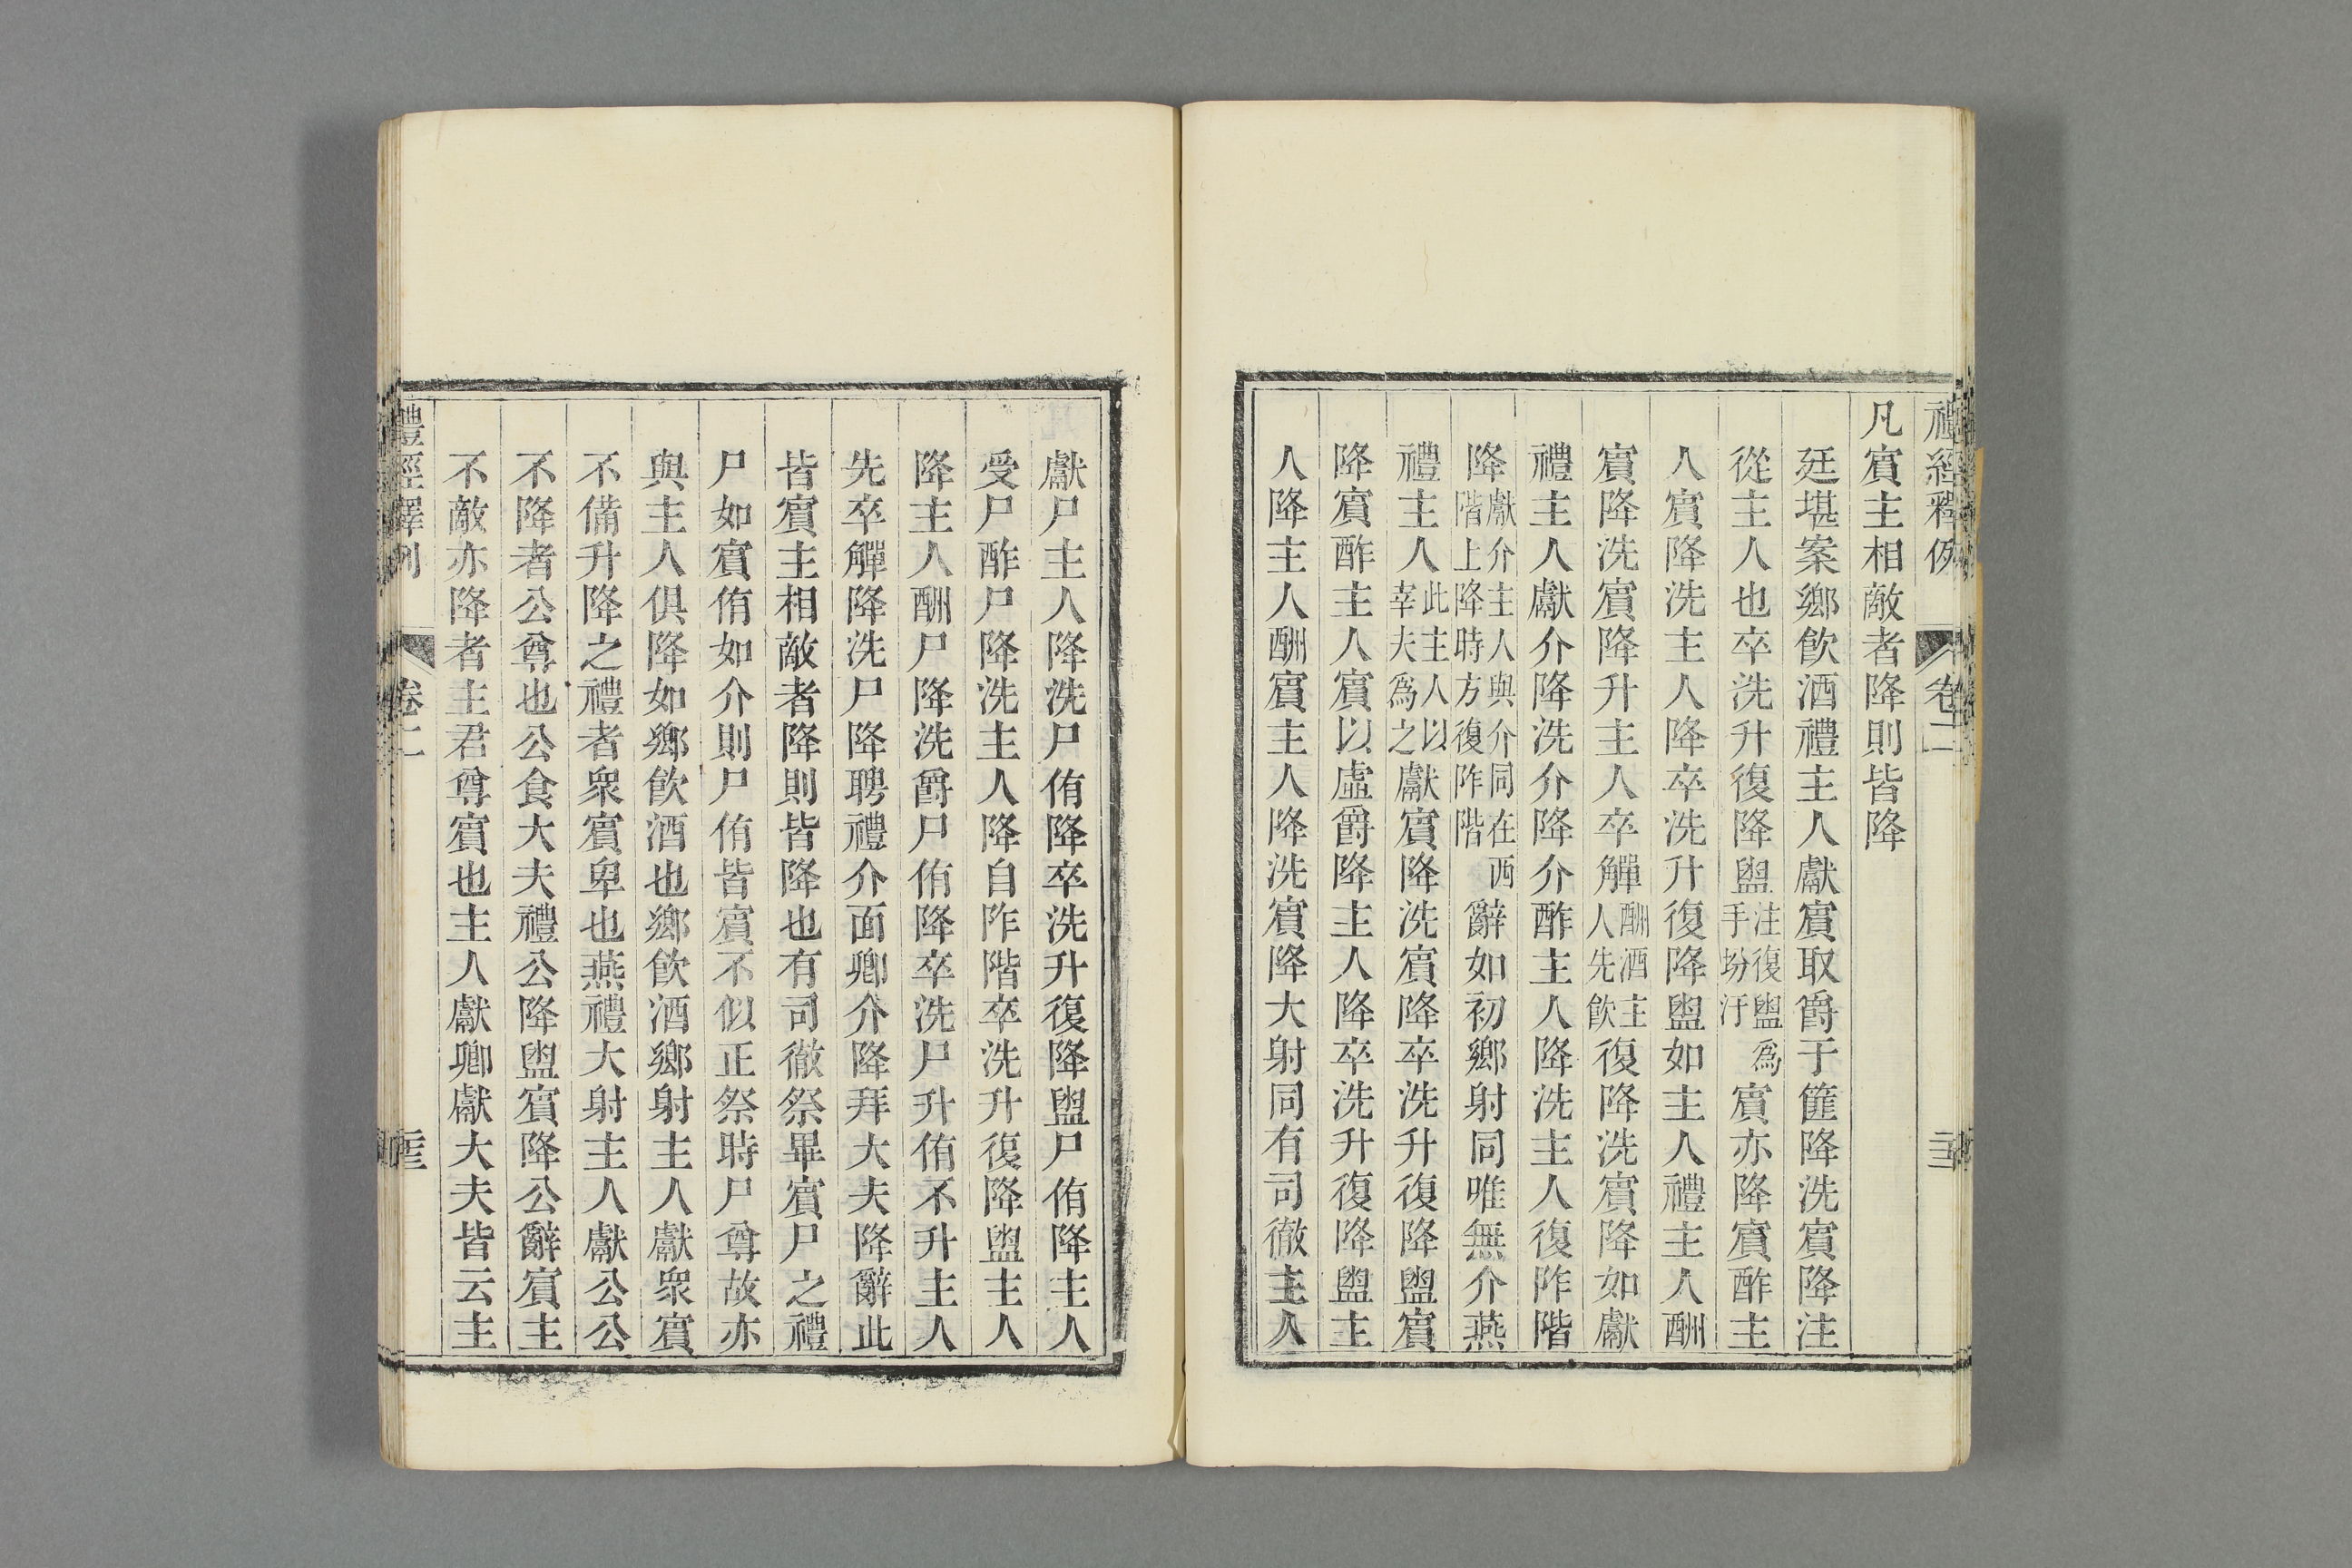 禮經釋例　卷二
凡賓主相敵者降則皆降
廷堪案鄉飲酒禮主人獻賓取爵于篚降洗賓降注
從主人也卒洗升復降盥注復盥爲手坋汙賓亦降賓酢主
人賓降洗主人降卒洗升復降盥如主人禮主人酬
賓降洗賓降升主人卒觶酬酒主人先飲復降洗賓降如獻
禮主人獻介降洗介降介酢主人降洗主人復阼階
降獻介主人與介同在西階上降時方復阼階辭如初鄉射同唯無介燕
禮主人此主人以宰夫爲之獻賓降洗賓降卒洗升復降盥賓
降賓酢主人賓以虛爵降主人降卒洗升復降盥主
人降主人酬賓主人降洗賓降大射同有司徹主人
獻尸主人降洗尸侑降卒洗升復降盥尸侑降主人
受尸酢尸降洗主人降自阼階卒洗升復降盥主人
降主人酬尸降洗爵尸侑降卒洗尸升侑不升主人
先卒觶降洗尸降聘禮介面卿介降拜大夫降辭此
皆賓主相敵者降則皆降也有司徹祭畢賓尸之禮
尸如賓侑如介則尸侑皆賓不似正祭時尸尊故亦
與主人俱降如鄉飲酒也鄉飲酒鄉射主人獻眾賓
不備升降之禮者眾賓卑也燕禮大射主人獻公公
不降者公尊也公食大夫禮公降盥賓降公辭賓主
不敵亦降者主君尊賓也主人獻卿獻大夫皆云主
禮經釋例　卷二